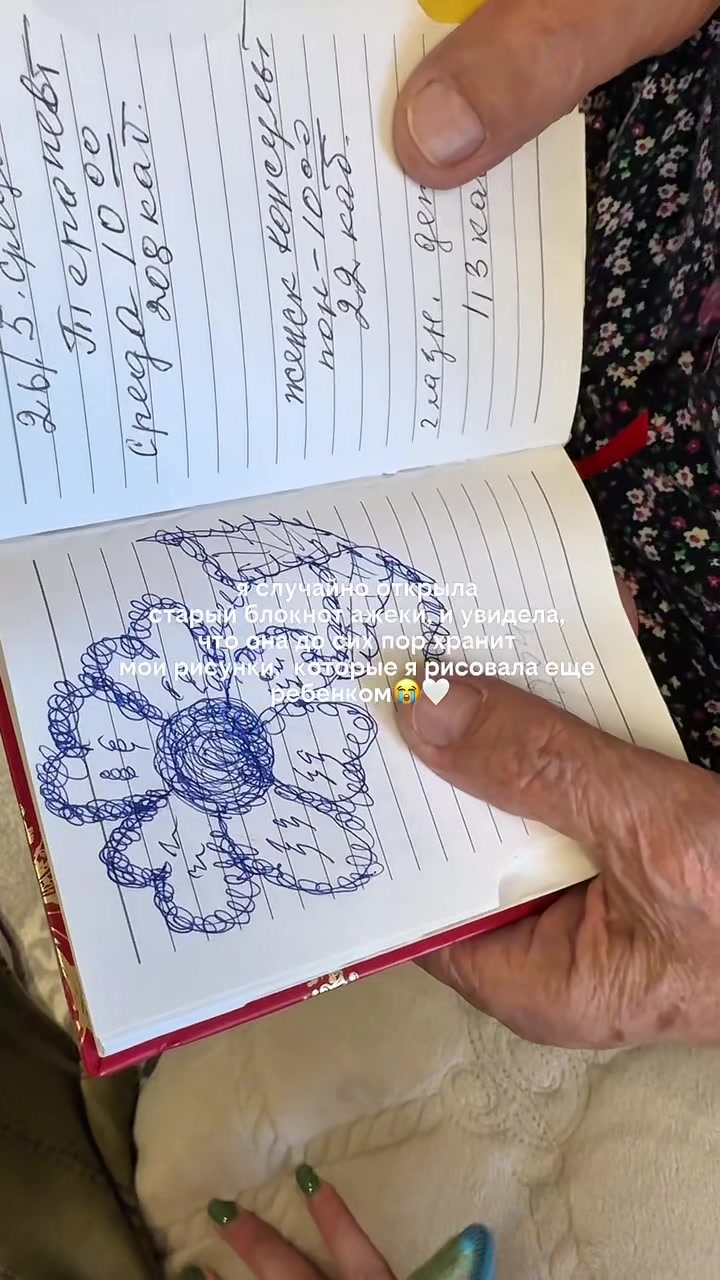 26/5.
Терапевт
среда 10 00
208 каб.
женск консульт
пон - 10 00
22 каб.
глазн.
113
я случайно открыла
старый блокнот ажеки, и увидела,
что она до сих пор хранит
мои рисунки, которые я рисовала еще
ребенком😭🤍